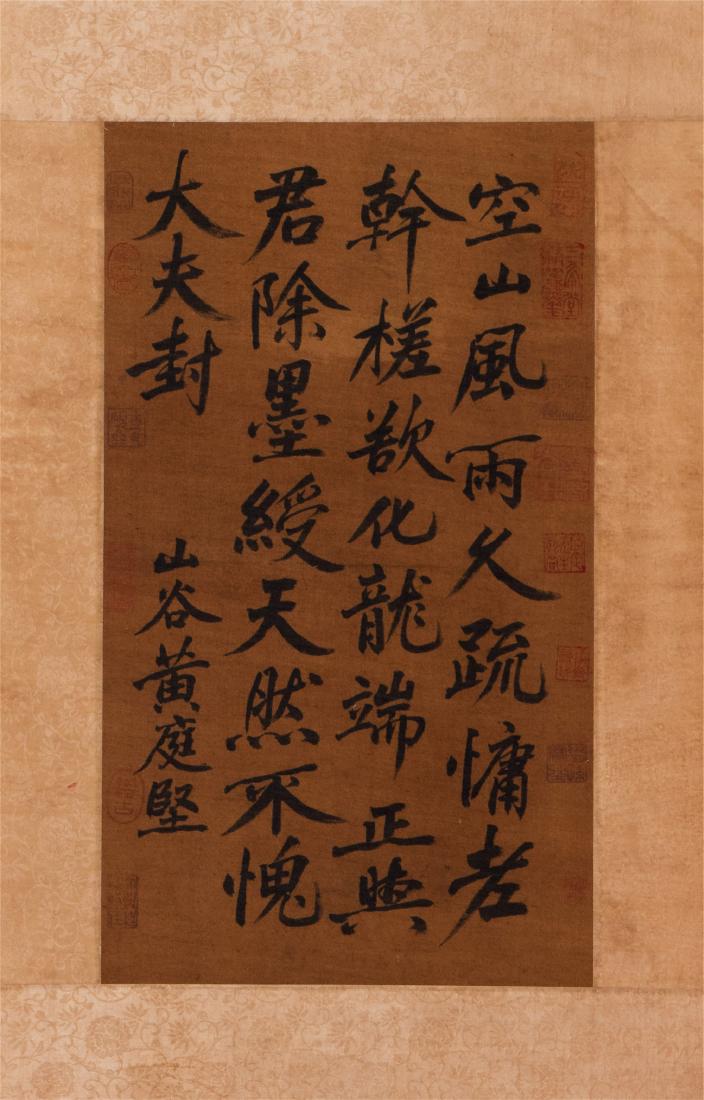 空山風雨久疏慵老
幹槎欲化龍端正與
君除墨綬天然不愧
大夫封
山谷黃庭堅